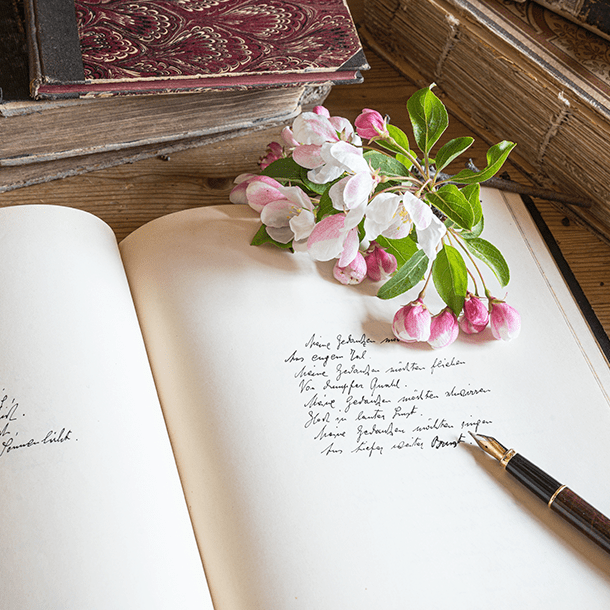 Sonnenlicht.
Meine Gedanken
Aus engem Tal.
Meine Gedanken möchten fliehen
Von dumpfer Qual.
Meine Gedanken möchten schwirren
Hoch in lauter Lust.
Meine Gedanken möchten singen
Aus tiefer weiter Brust